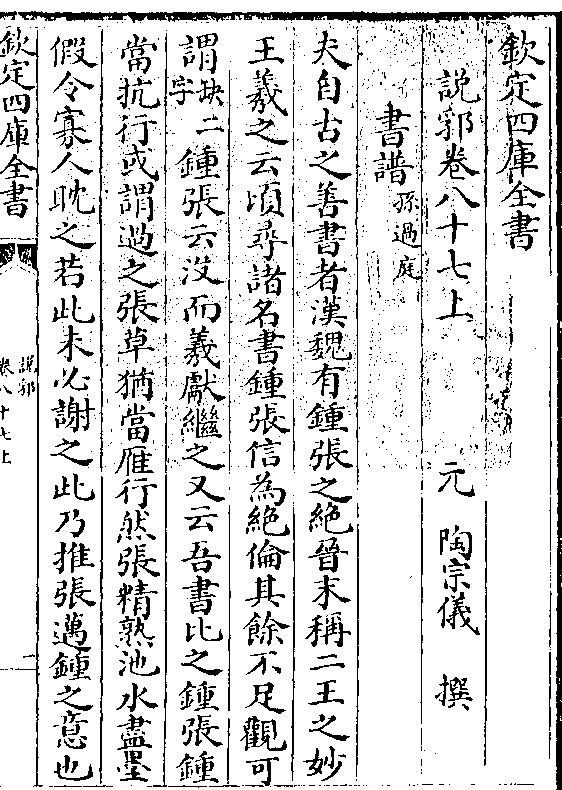 欽定四庫全書
説郛卷八十七上
元 陶宗儀 撰
書譜孫過庭
夫自古之善書者漢魏有鍾張之絶晉末稱二王之妙
王羲之云頃尋諸名書鍾張信為絶倫其餘不足觀可
謂缺二字鍾張云没而羲獻繼之又云吾書比之鍾張鍾
當抗行或謂過之張草猶當雁行然張精熟池水盡墨
假令寡人耽之若此未必謝之此乃推張邁鍾之意也
欽定四庫全書
説郛
卷八十七上
一